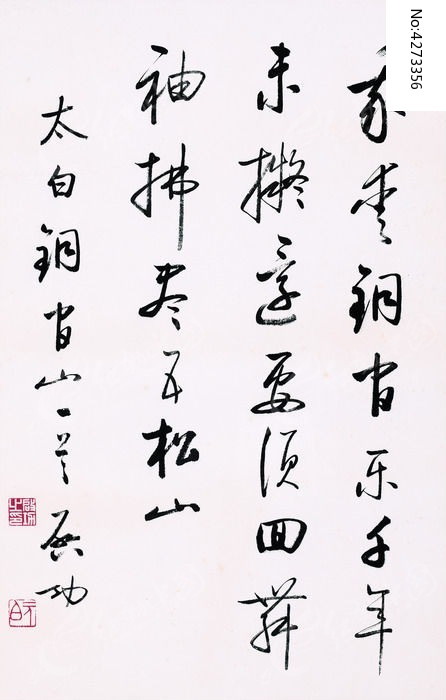 我爱铜官乐千年
未拟还要须回舞
袖拂尽五松山
太白铜官山一首 启功
No:4273356